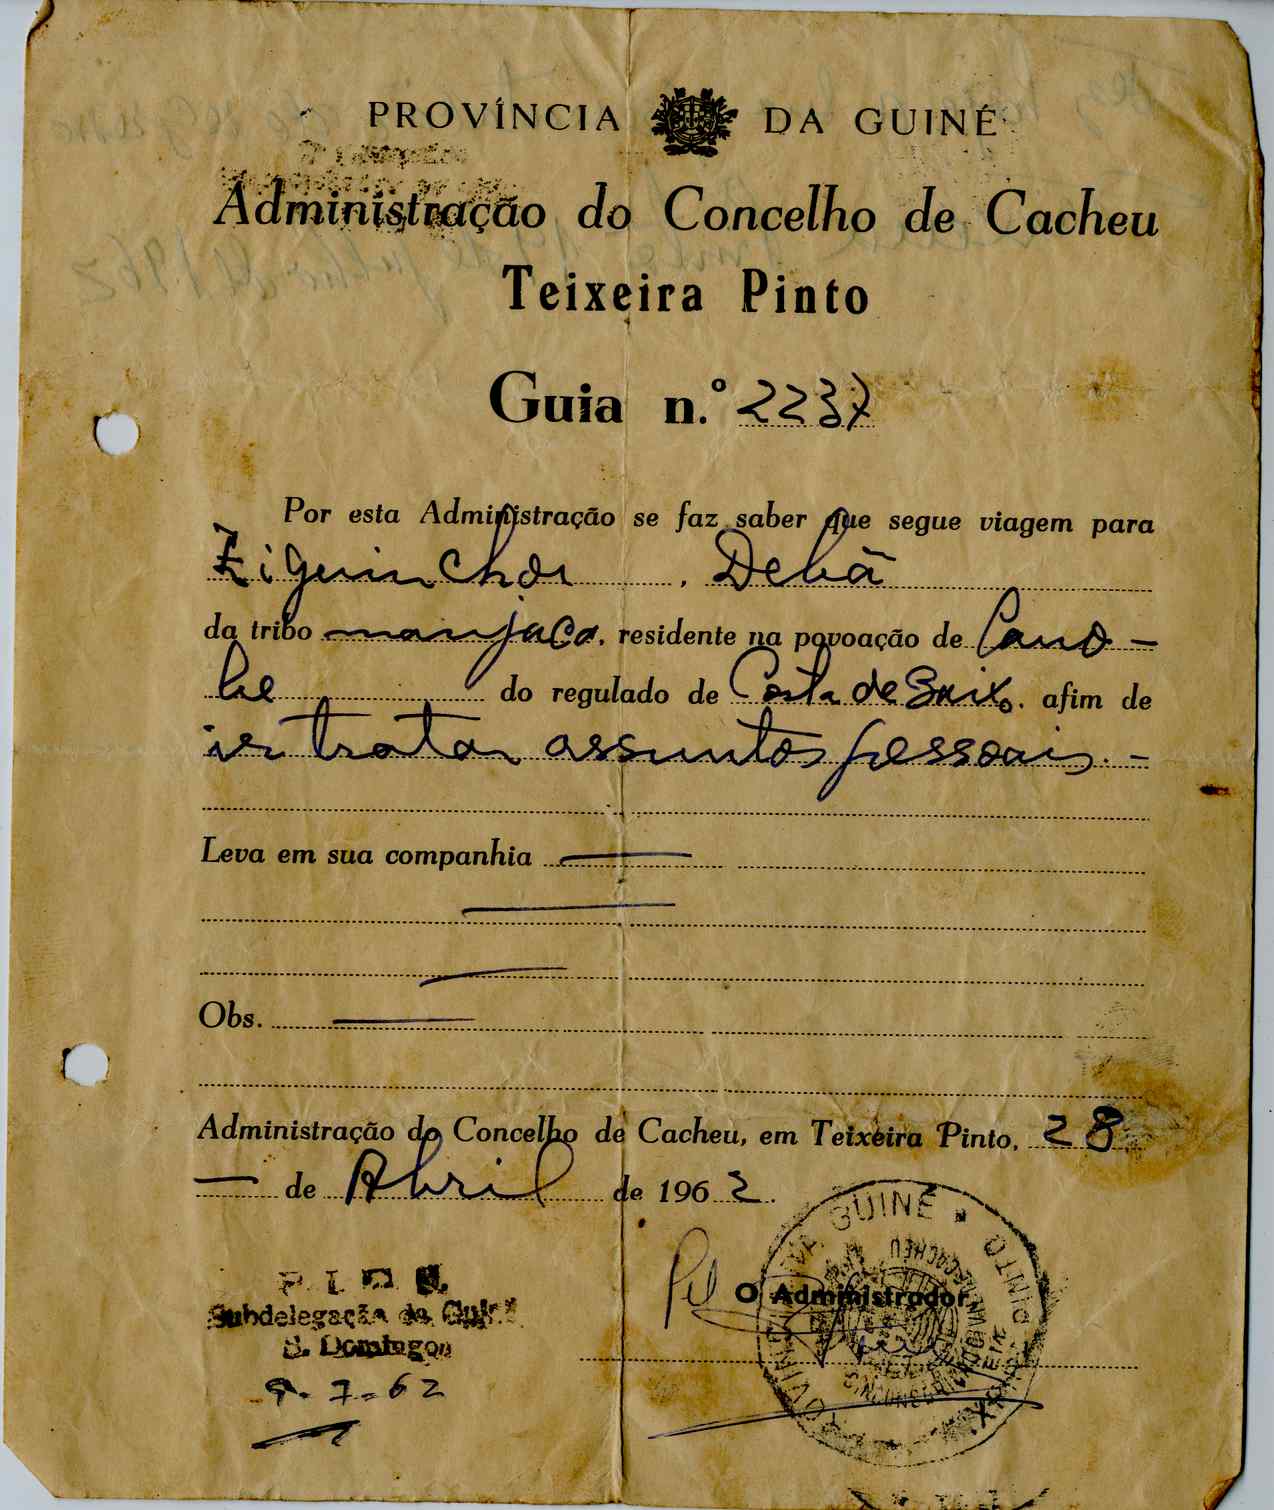 PROVÍNCIA DA GUINÉ
Administração do Concelho de Cacheu
Teixeira Pinto
Guia n.º 2237
Por esta Administração se faz saber que segue viagem para
Ziguinchor, Debã
da tribo manjaca, residente na povoação de Cano-
be do regulado de Costa de Baixo, afim de
ir tratar assuntos pessoais.-
Leva em sua companhia —
—
—
Obs. —
Administração do Concelho de Cacheu, em Teixeira Pinto, 28
— de Abril de 1962.
GUINÉ
P. I. D. E.
Subdelegação da Guiné
S. Domingos
9.7.62
Pel O Administrador,